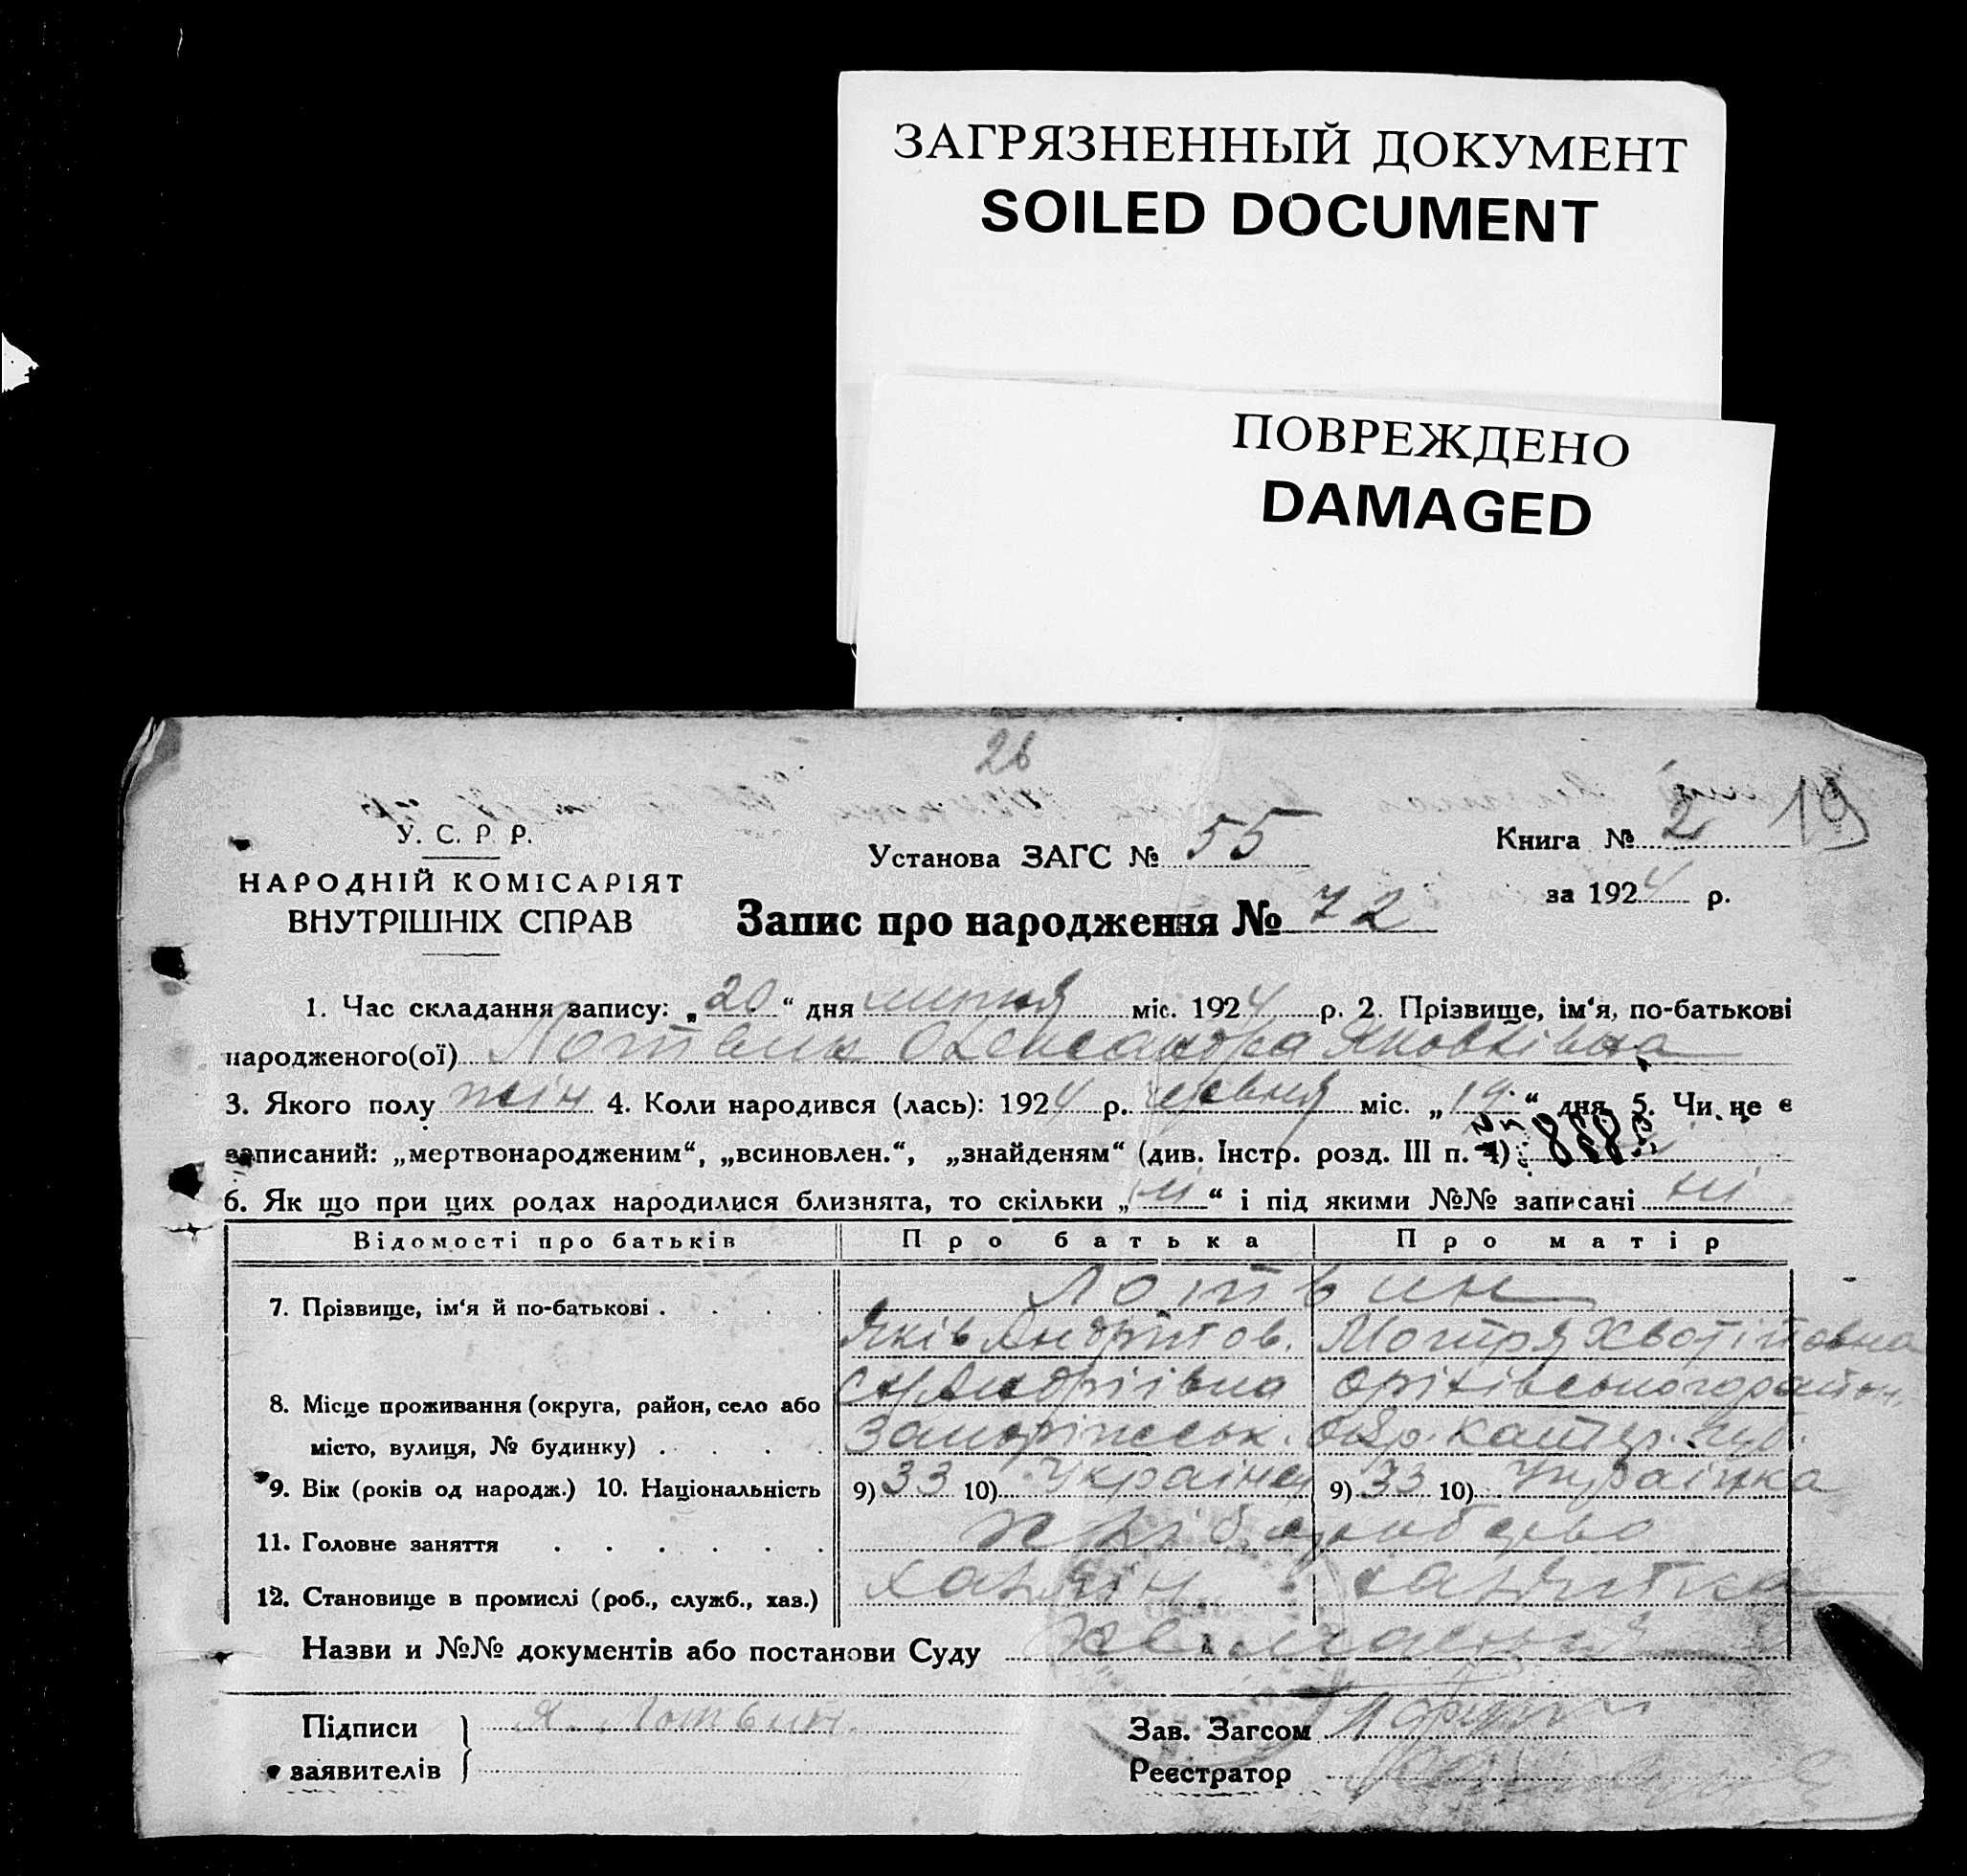 ЗАГРЯЗНЕННЫЙ ДОКУМЕНТ
SOILED DOCUMENT
ПОВРЕЖДЕНО
DAMAGED
26
19
У. С. Р. Р.
НАРОДНІЙ КОМІСАРІЯТ
ВНУТРІШНІХ СПРАВ
Установа ЗАГС № 55
Книга № 2
за 1924 р.
Запис про народження № 72
1. Час складання запису: „20“ дня липня міс. 1924 р. 2. Прізвище, ім‘я, по-батькові
народженого(ої) Лотвин Олександра Яковлівна
3. Якого полу жін 4. Коли народився (лась): 1924 р. червня міс. „19“ дня 5. Чи не є
записаний: „мертвонародженим“, „всиновлен.“, „знайденям“ (див. Інстр. розд. III п. 4)
6. Як що при цих родах народилися близнята, то скільки „ні“ і під якими №№ записані ні
Відомості про батьків Про батька Про матір
7. Прізвище, ім‘я й по-батькові . . . . Лотвин
Яків Мотря
8. Місце проживання (округа, район, село або Оріхівського район.
місто, вулиця, № будинку) . . . . Запоріжськ. губ.
9. Вік (років од народж.) 10. Національність 9) 33 10) Українец 9) 33 10) Українка
11. Головне заняття . . . . . . хліборобство
12. Становище в промислі (роб., служб., хаз.) хазяін хазяйка
Назви и №№ документів або постанови Суду
Підписи Я. Лотвин.
заявителів
Зав. Загсом
Реєстратор